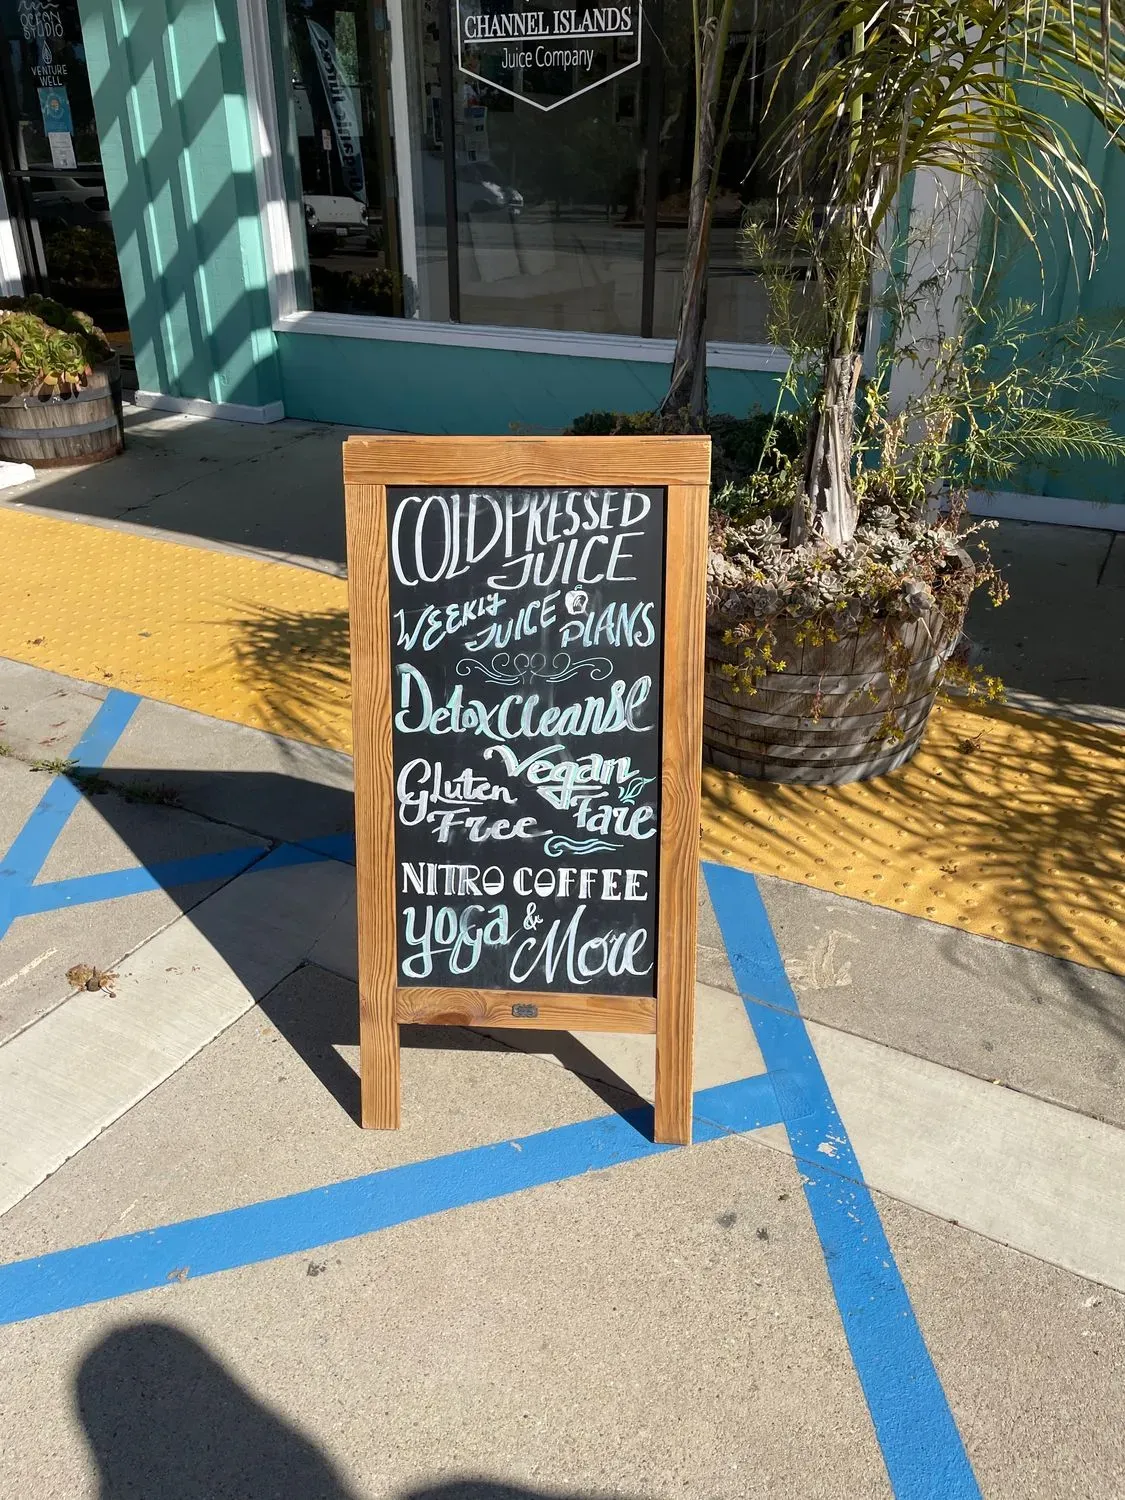 OCEAN
STUDIO
VENTURE
WELL
CHANNEL ISLANDS
Juice Company
organic juices
COLD PRESSED
JUICE
WEEKLY
JUICE PLANS
Detox Cleanse
Gluten
Free
Vegan
Fare
NITRO COFFEE
yoga & More